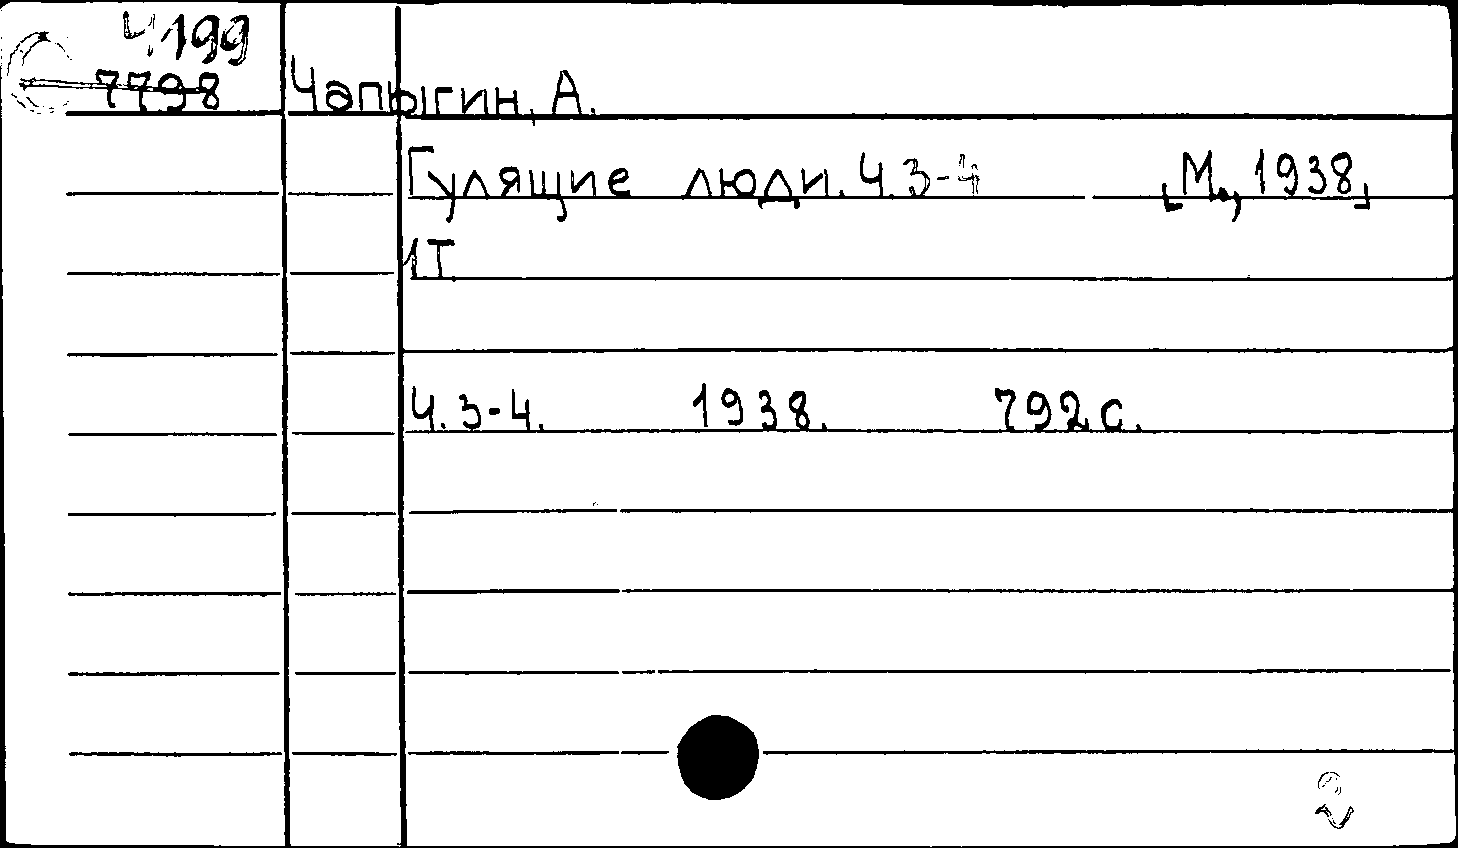 Ч199
7798
Чапыгин, А.
Гулящие люди. Ч.3-4 [М., 1938]
1Т
Ч.3-4. 1938. 792с.
2